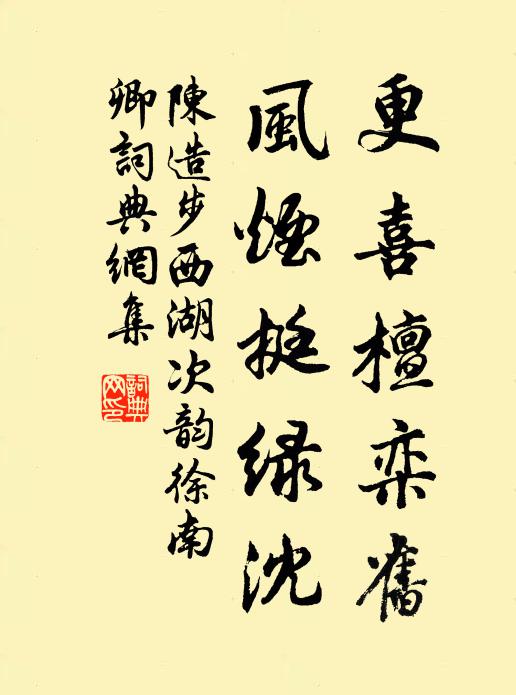 更喜檀栾舊
風煙挺绿沈
陳造步西湖次韵徐南
卿詞典網集
詞典網印